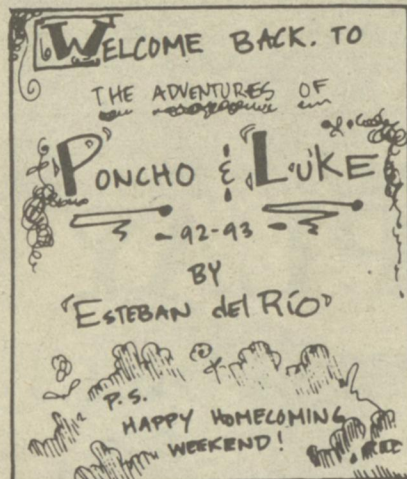 WELCOME BACK. TO
THE ADVENTURES OF
PONCHO & LUKE
- 92-93 -
BY
"ESTEBAN del RÍO"
P.S.
HAPPY HOMECOMING
WEEKEND!